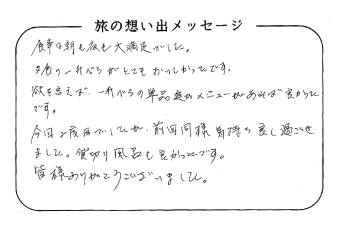 旅の想い出メッセージ
食事は朝も夜も大満足でした。
夕食の一れべらがとてもおいしかったです。
欲を言えば、一れべらの単品メニューがあれば良かった
です。
今回2度目でしたが、前回同様気持の良い過ごせ
ました。貸切り風呂も良かったです。
皆様ありがとうございました。